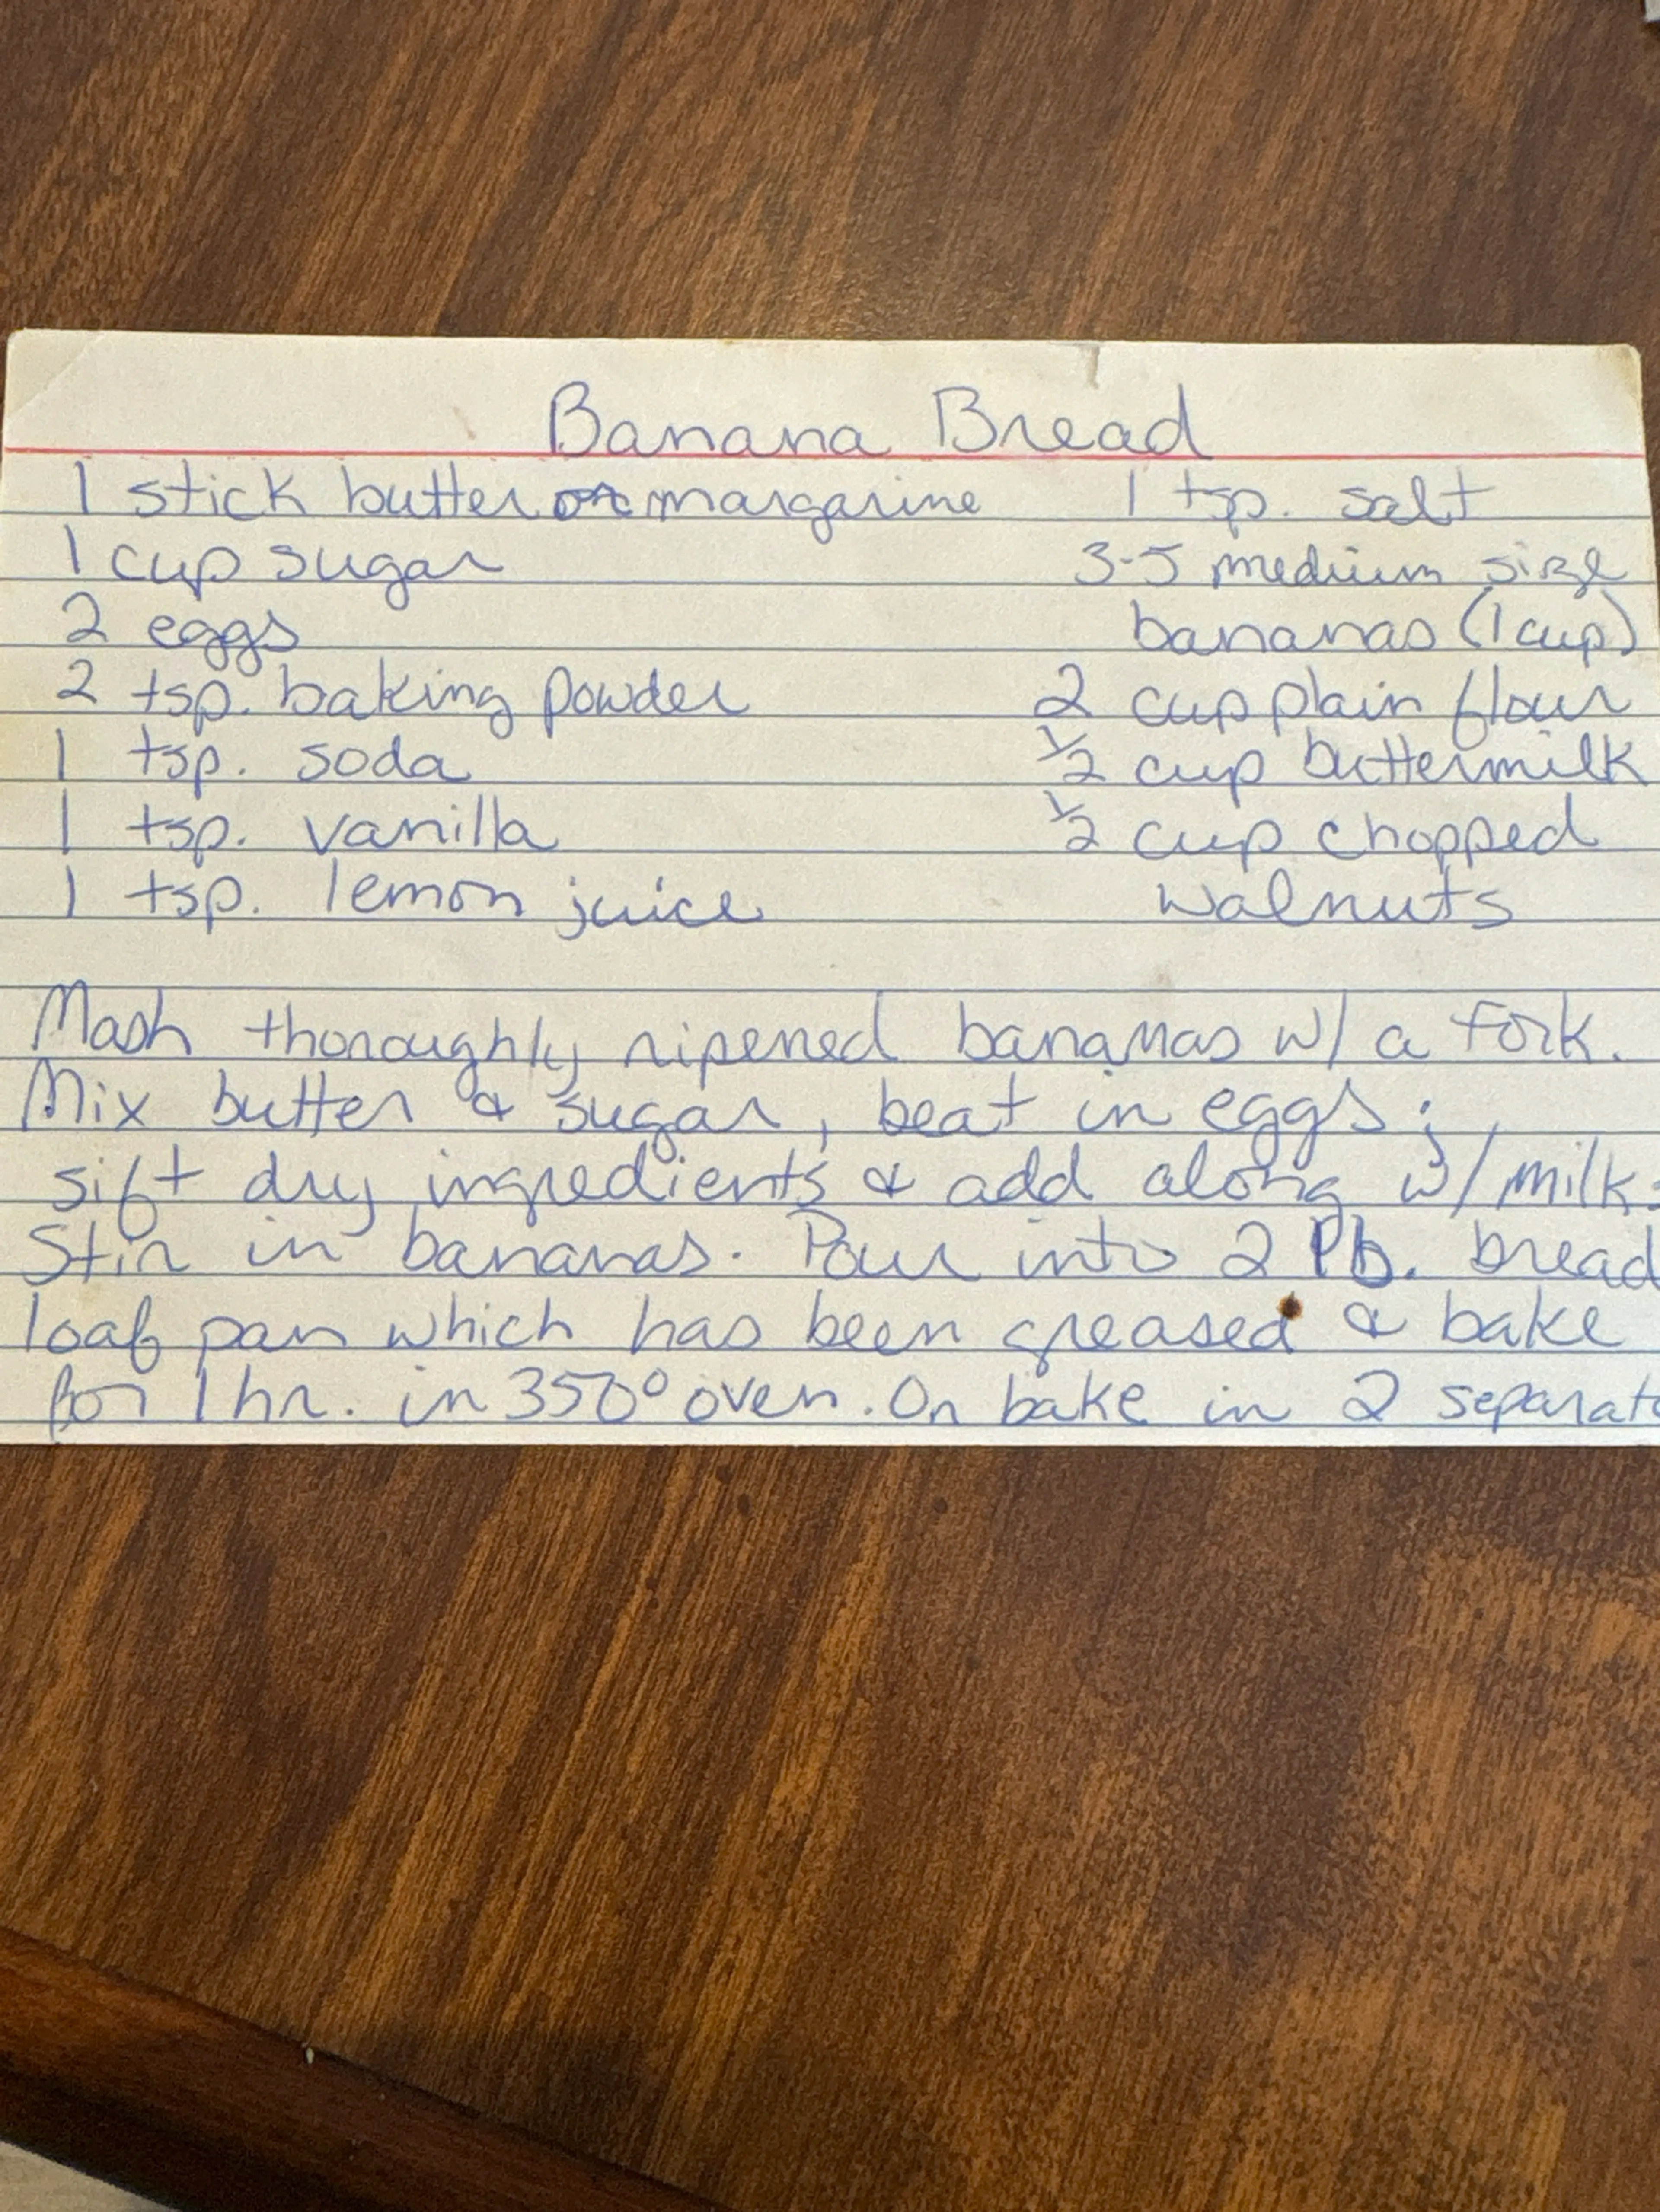 Banana Bread
1 stick butter or margarine 1 tsp. salt
1 cup sugar 3-5 medium size
2 eggs bananas (1 cup)
2 tsp. baking powder 2 cup plain flour
1 tsp. soda 1/2 cup buttermilk
1 tsp. vanilla 1/2 cup chopped
1 tsp. lemon juice walnuts
Mash thoroughly ripened bananas w/ a fork.
Mix butter & sugar, beat in eggs;
sift dry ingredients & add along w/ milk.
Stir in bananas. Pour into 2 lb. bread
loaf pan which has been greased & bake
for 1 hr. in 350° oven. Or bake in 2 separate